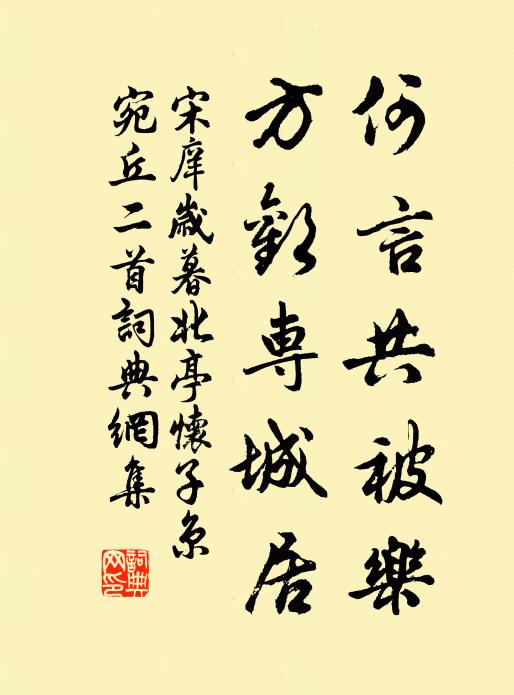 何言共被樂
方歡専城居
宋庠歲暮北亭懷子京
宛丘二首詞典網集
詞典網印